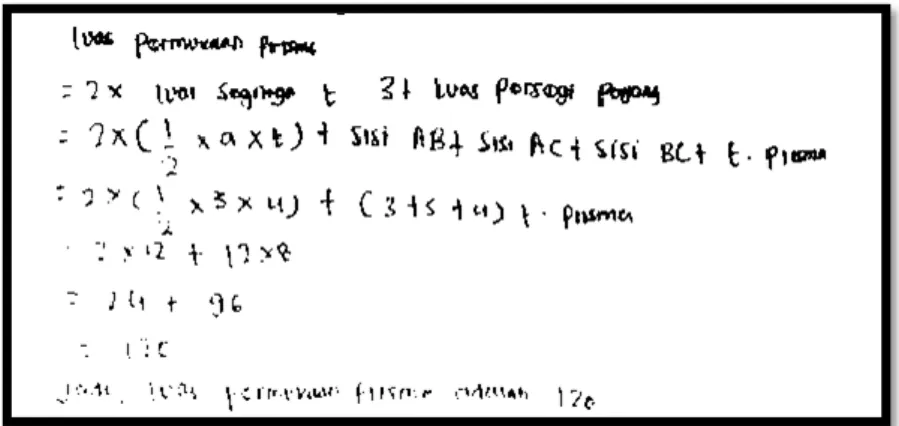 luas permukaan prisma
= 2 x luas segitiga + 3 + luas persegi panjang
= 2 x ( 1/2 x a x t ) + sisi AB + sisi AC + sisi BC + t. prisma
= 2 x ( 1/2 x 3 x 4 ) + ( 3 + 5 + 4 ) t. prisma
= 2 x 12 + 12 x 8
= 24 + 96
= 120
Jadi, luas permukaan prisma adalah 120